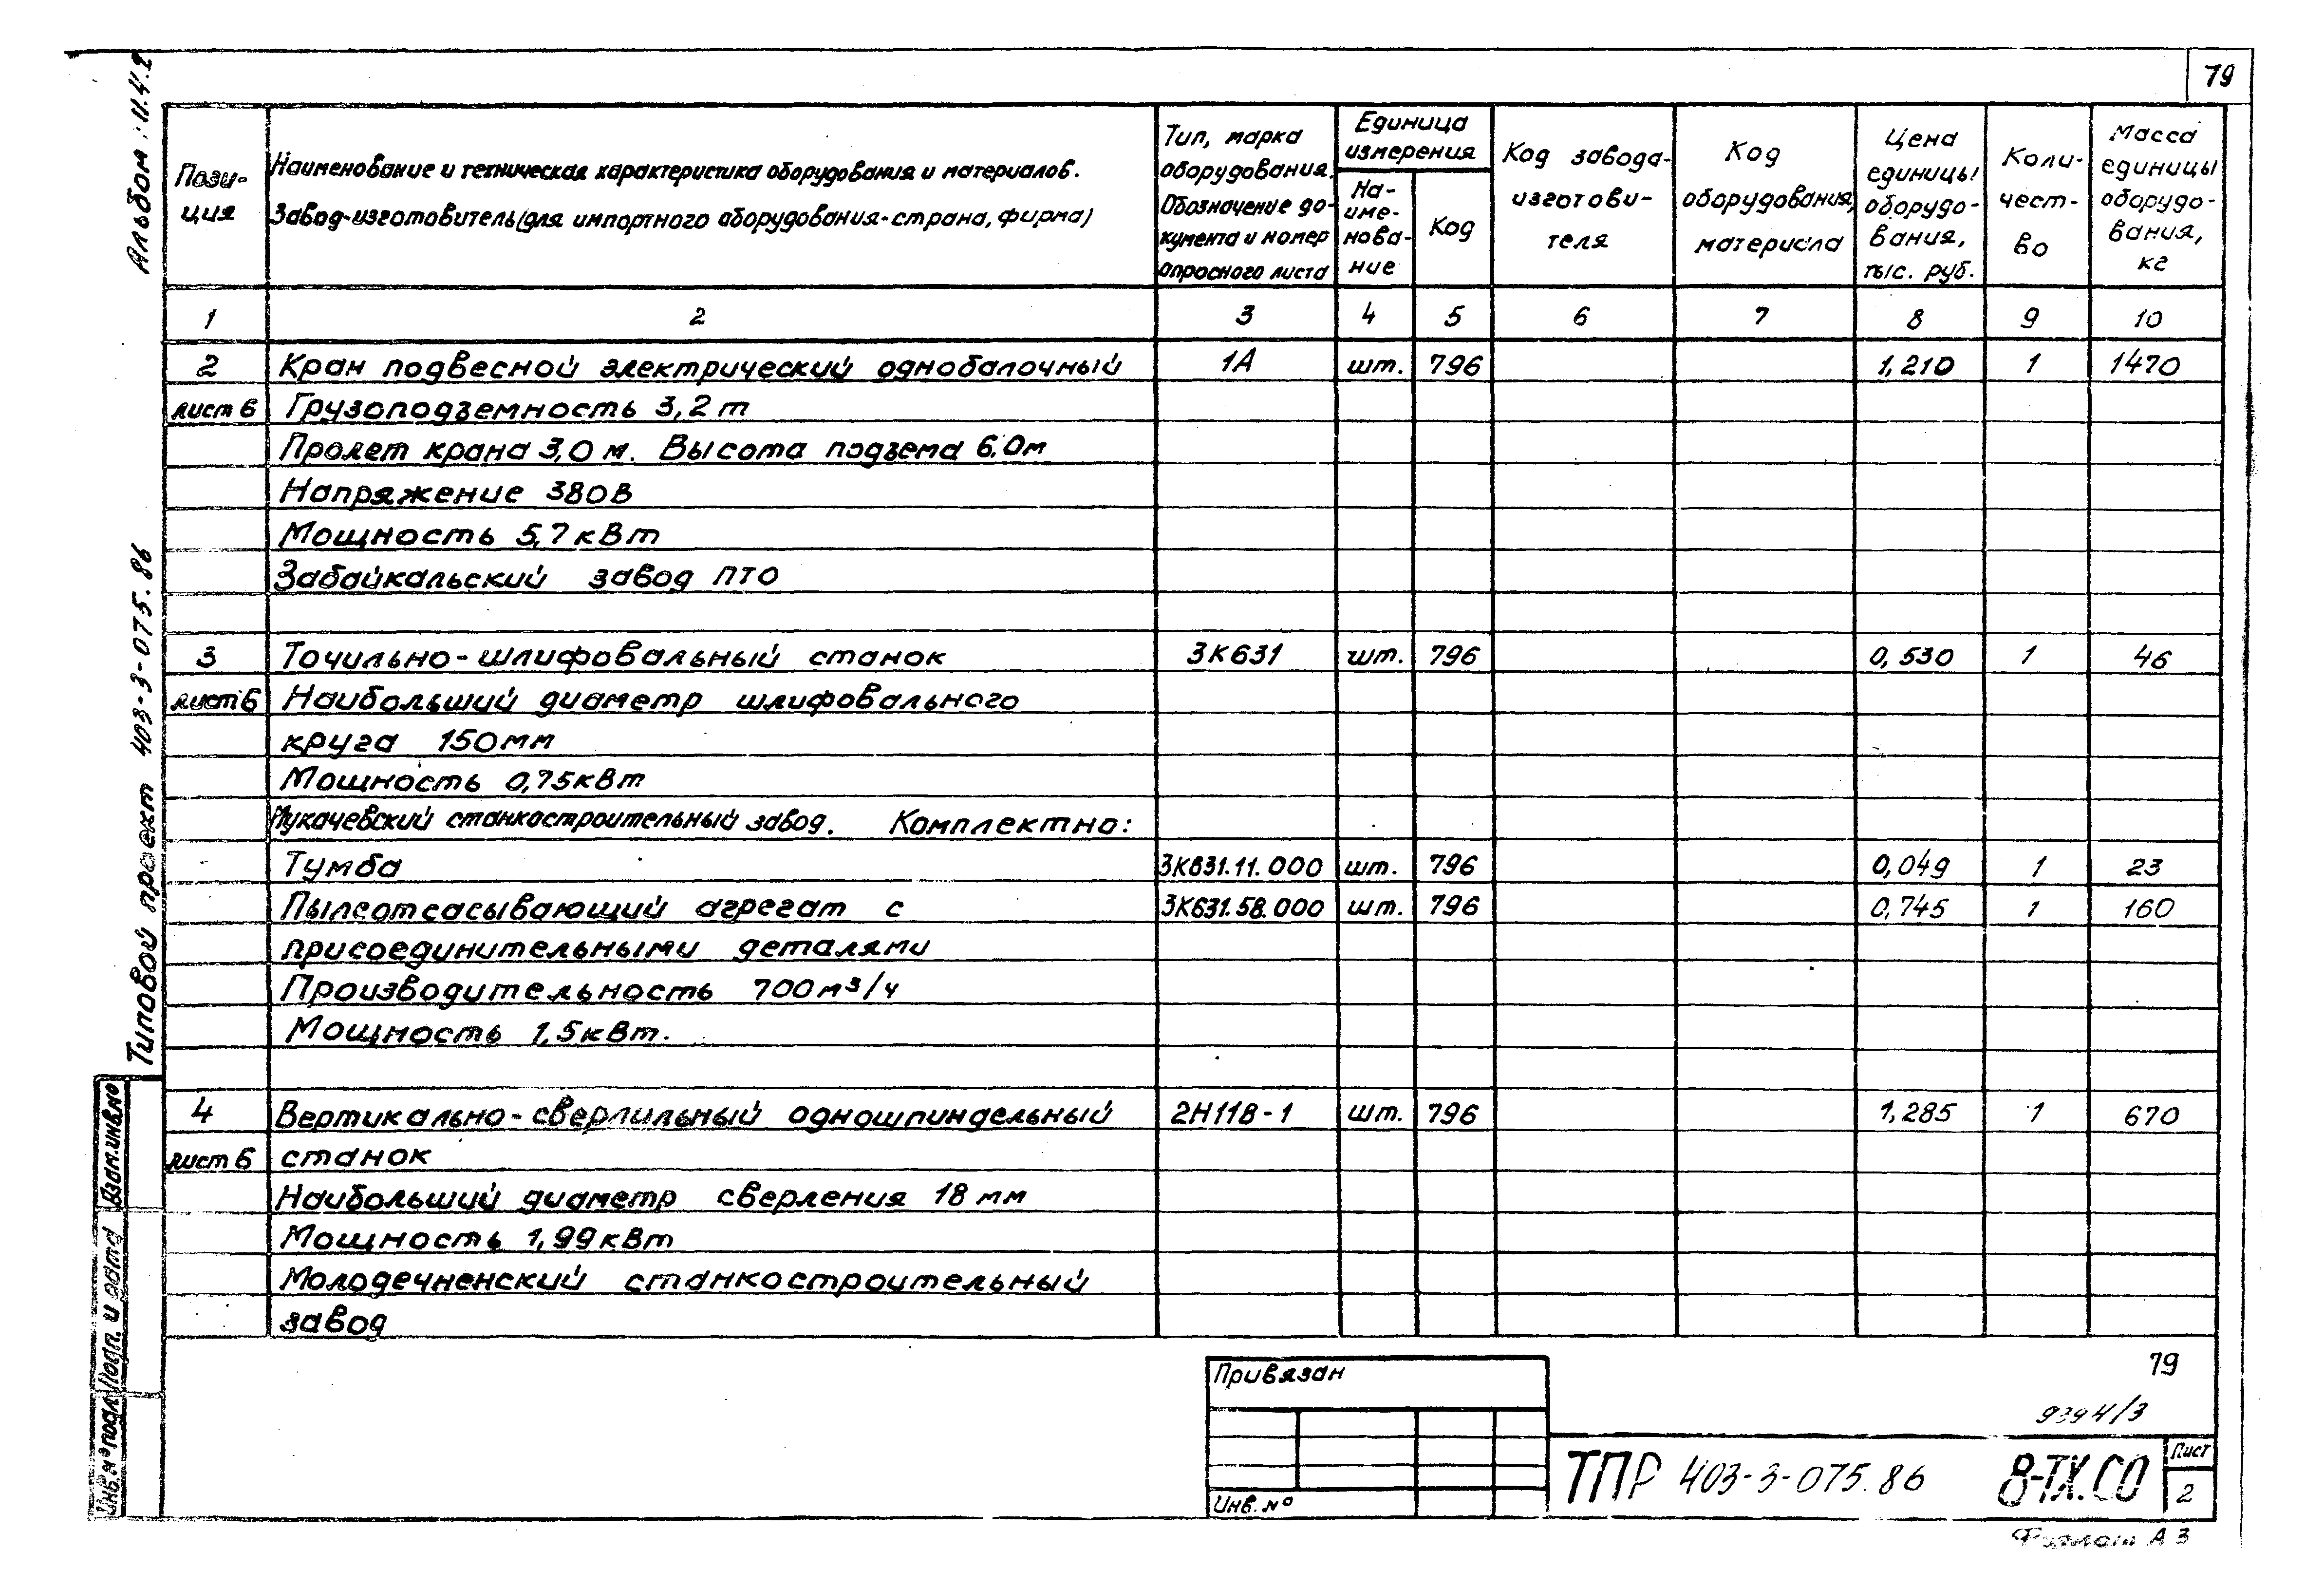 79
Альбом: 11.4.2
Типовой проект 403-3-075.86
Пози-
ция
Наименование и техническая характеристика оборудования и материалов.
Завод-изготовитель (для импортного оборудования-страна, фирма)
Тип, марка
оборудования.
Обозначение до-
кумента и номер
опросного листа
Единица
измерения
На-
име-
нова-
ние
Код
Код завода-
изготови-
теля
Код
оборудования,
материала
Цена
единицы
оборудо-
вания,
тыс. руб.
Коли-
чест-
во
Масса
единицы
оборудо-
вания,
кг
1 2 3 4 5 6 7 8 9 10
2 Кран подвесной электрический однобалочный 1А шт. 796 1,210 1 1470
лист 6 Грузоподъемность 3,2т
Пролет крана 3,0 м. Высота подъема 6,0м
Напряжение 380В
Мощность 5,7кВт
Забайкальский завод ПТО
3 Точильно-шлифовальный станок 3К631 шт. 796 0,530 1 46
лист 6 Наибольший диаметр шлифовального
круга 150мм
Мощность 0,75кВт
Мукачевский станкостроительный завод. Комплектно:
Тумба 3К631.11.000 шт. 796 0,049 1 23
Пылеотсасывающий агрегат с 3К631.58.000 шт. 796 0,745 1 160
присоединительными деталями
Производительность 700м³/ч
Мощность 1,5кВт.
4 Вертикально-сверлильный одношпиндельный 2Н118-1 шт. 796 1,285 1 670
лист 6 станок
Наибольший диаметр сверления 18 мм
Мощность 1,99кВт
Молодечненский станкостроительный
завод
Взам.инв.№
Подп. и дата
Инв.№ подл.
Привязан
Инв. №
79
9394/3
ТПР 403-3-075.86 8-ТХ.СО
Лист
2
Формат А3